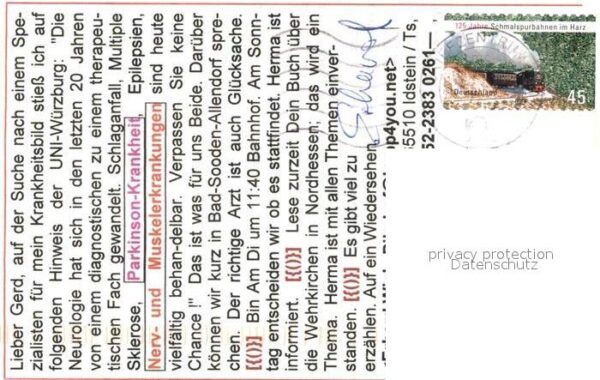 Lieber Gerd, auf der Suche nach einem Spe-
zialisten für mein Krankheitsbild stieß ich auf
folgenden Hinweis der UNI-Würzburg: "Die
Neurologie hat sich in den letzten 20 Jahren
von einem diagnostischen zu einem therapeu-
tischen Fach gewandelt. Schlaganfall, Multiple
Sklerose, Parkinson-Krankheit, Epilepsien,
Nerv- und Muskelerkrankungen sind heute
vielfältig behan-delbar. Verpassen Sie keine
Chance !" Das ist was für uns Beide. Darüber
können wir kurz in Bad-Sooden-Allendorf spre-
chen. Der richtige Arzt ist auch Glücksache.
[{()}] Bin Am Di um 11:40 Bahnhof. Am Sonn-
tag entscheiden wir ob es stattfindet. Herma ist
informiert. [{()}] Lese zurzeit Dein Buch über
die Wehrkirchen in Nordhessen; das wird ein
Thema. Herma ist mit allen Themen einver-
standen. [{()}] Es gibt viel zu
erzählen. Auf ein Wiedersehen
p4you.net>
65510 Idstein / Ts,
52-2383 0261
125 Jahre Schmalspurbahnen im Harz
Deutschland
45
privacy protection
Datenschutz